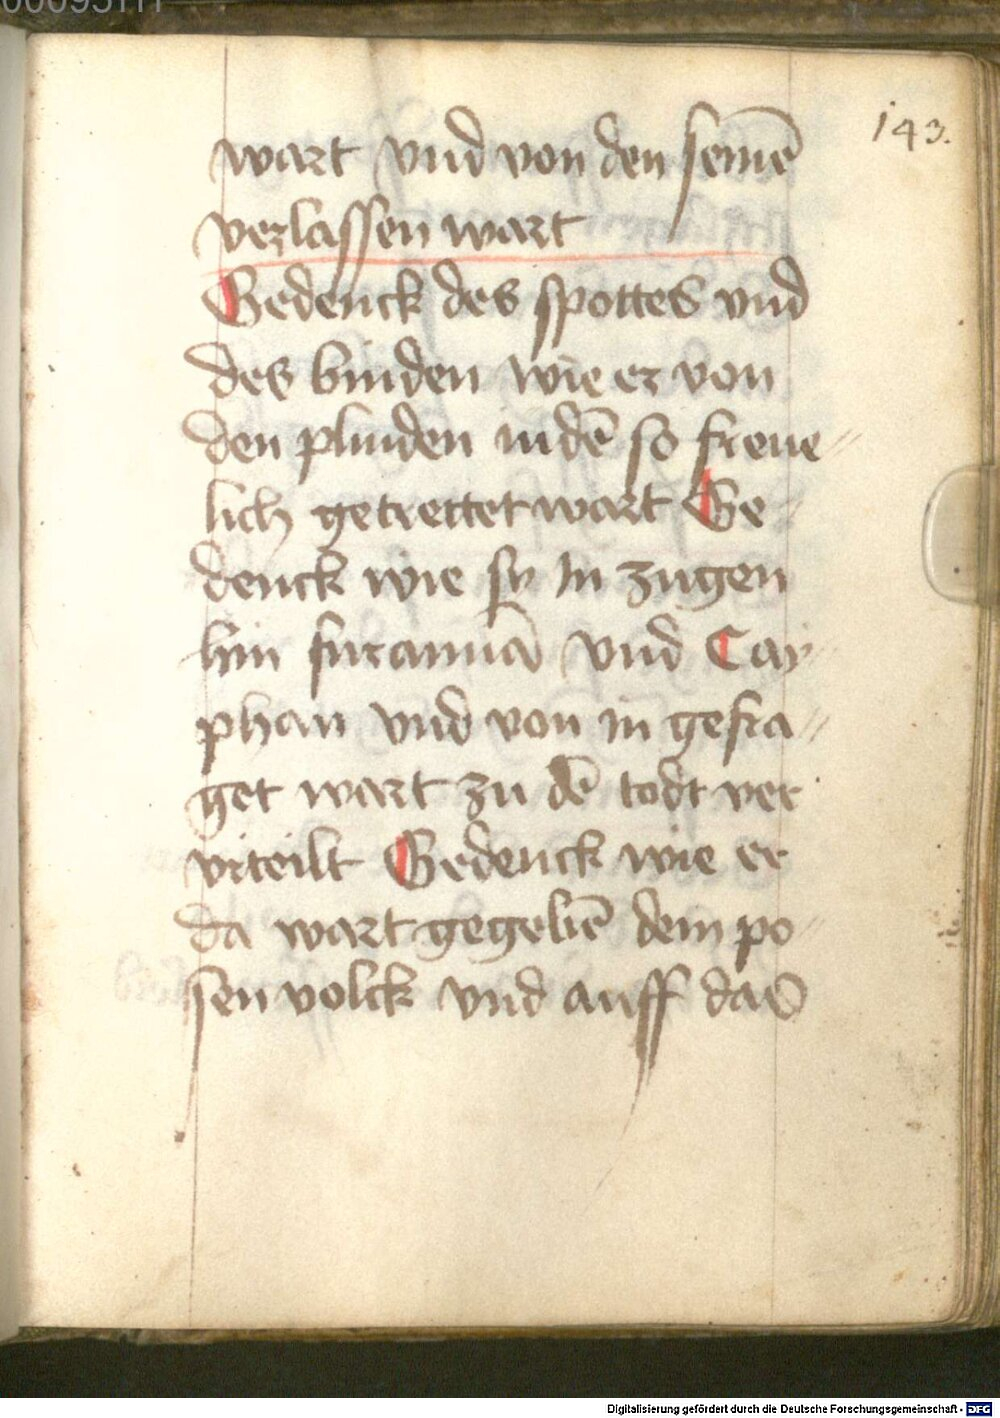 143.
wart vnd von den seinē
verlassen wart
Gedenck des spottes vnd
des binden wie er von
den plinden iudē so freue
lich getrettet wart Ge
denck wie sy in zugen
hin fur annā vnd Cay
phan vnd von in gefra
get wart zu dē todt ver
vrteilt Gedenck wie er
da wart gegebē dem po
sen volck vnd auff das
Digitalisierung gefördert durch die Deutsche Forschungsgemeinschaft - DFG